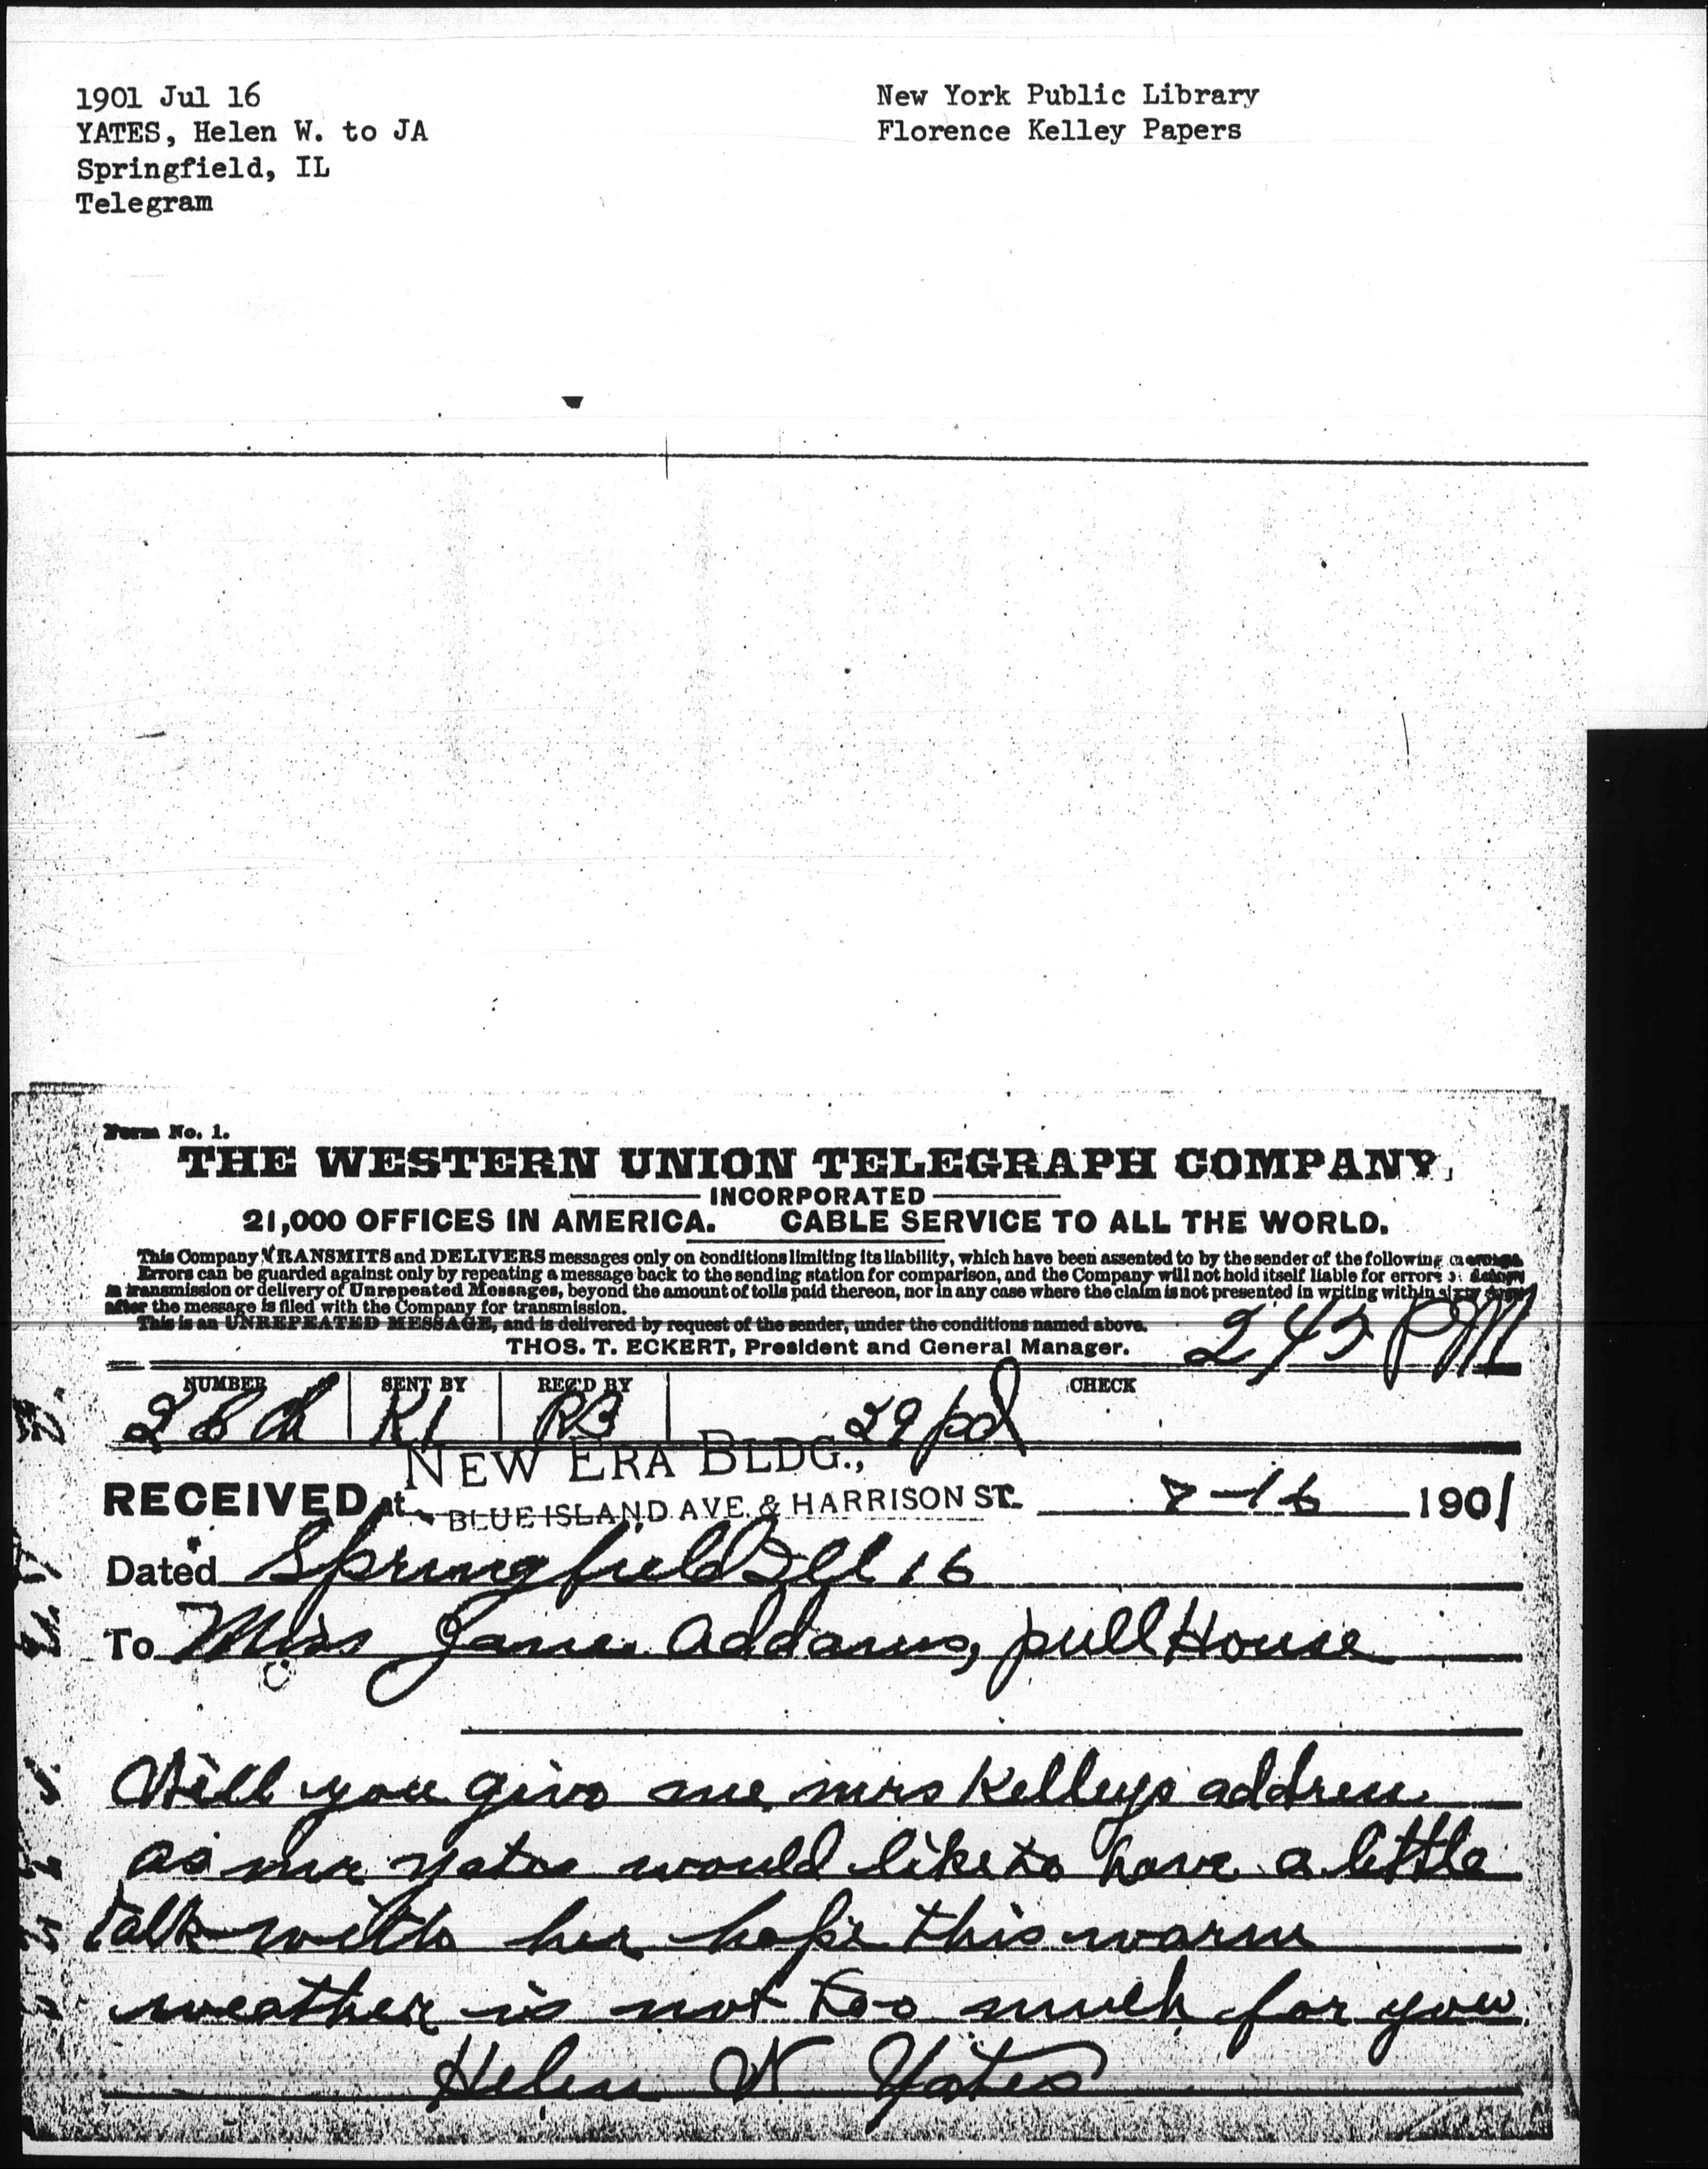 1901 Jul 16
YATES, Helen W. to JA
Springfield, IL
Telegram
New York Public Library
Florence Kelley Papers
Form No. 1.
THE WESTERN UNION TELEGRAPH COMPANY.
INCORPORATED
21,000 OFFICES IN AMERICA. CABLE SERVICE TO ALL THE WORLD.
This Company TRANSMITS and DELIVERS messages only on conditions limiting its liability, which have been assented to by the sender of the following message.
Errors can be guarded against only by repeating a message back to the sending station for comparison, and the Company will not hold itself liable for errors or delays
in transmission or delivery of Unrepeated Messages, beyond the amount of tolls paid thereon, nor in any case where the claim is not presented in writing within sixty days
after the message is filed with the Company for transmission.
This is an UNREPEATED MESSAGE, and is delivered by request of the sender, under the conditions named above.
THOS. T. ECKERT, President and General Manager.
245 PM
NUMBER SENT BY REC'D BY CHECK
KI RB 29 pd
NEW ERA BLDG.,
RECEIVED at BLUE ISLAND AVE. & HARRISON ST. 7-16 1901
Dated Springfield Ill 16
To Miss Jane Addams, pull House
Will you give me mrs Kelleys address
as mr yates would like to have a little
talk with her hope this warm
weather is not too much for you
Helen W Yates